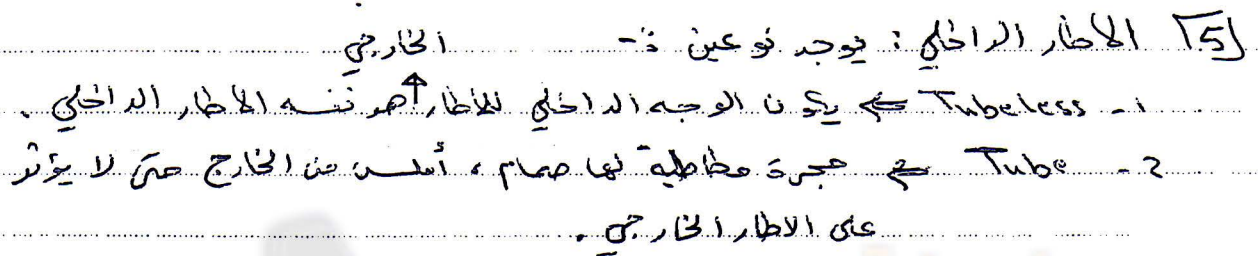 5 الاطار الداخلي : يوجد نوعين :-
1- Tubeless ⇐ يكون الوجه الداخلي للاطار الخارجي هو نفسه الاطار الداخلي .
2- Tube ⇐ حجرة مطاطية لها صمام ، أملس من الخارج حتى لا يؤثر
على الاطار الخارجي .